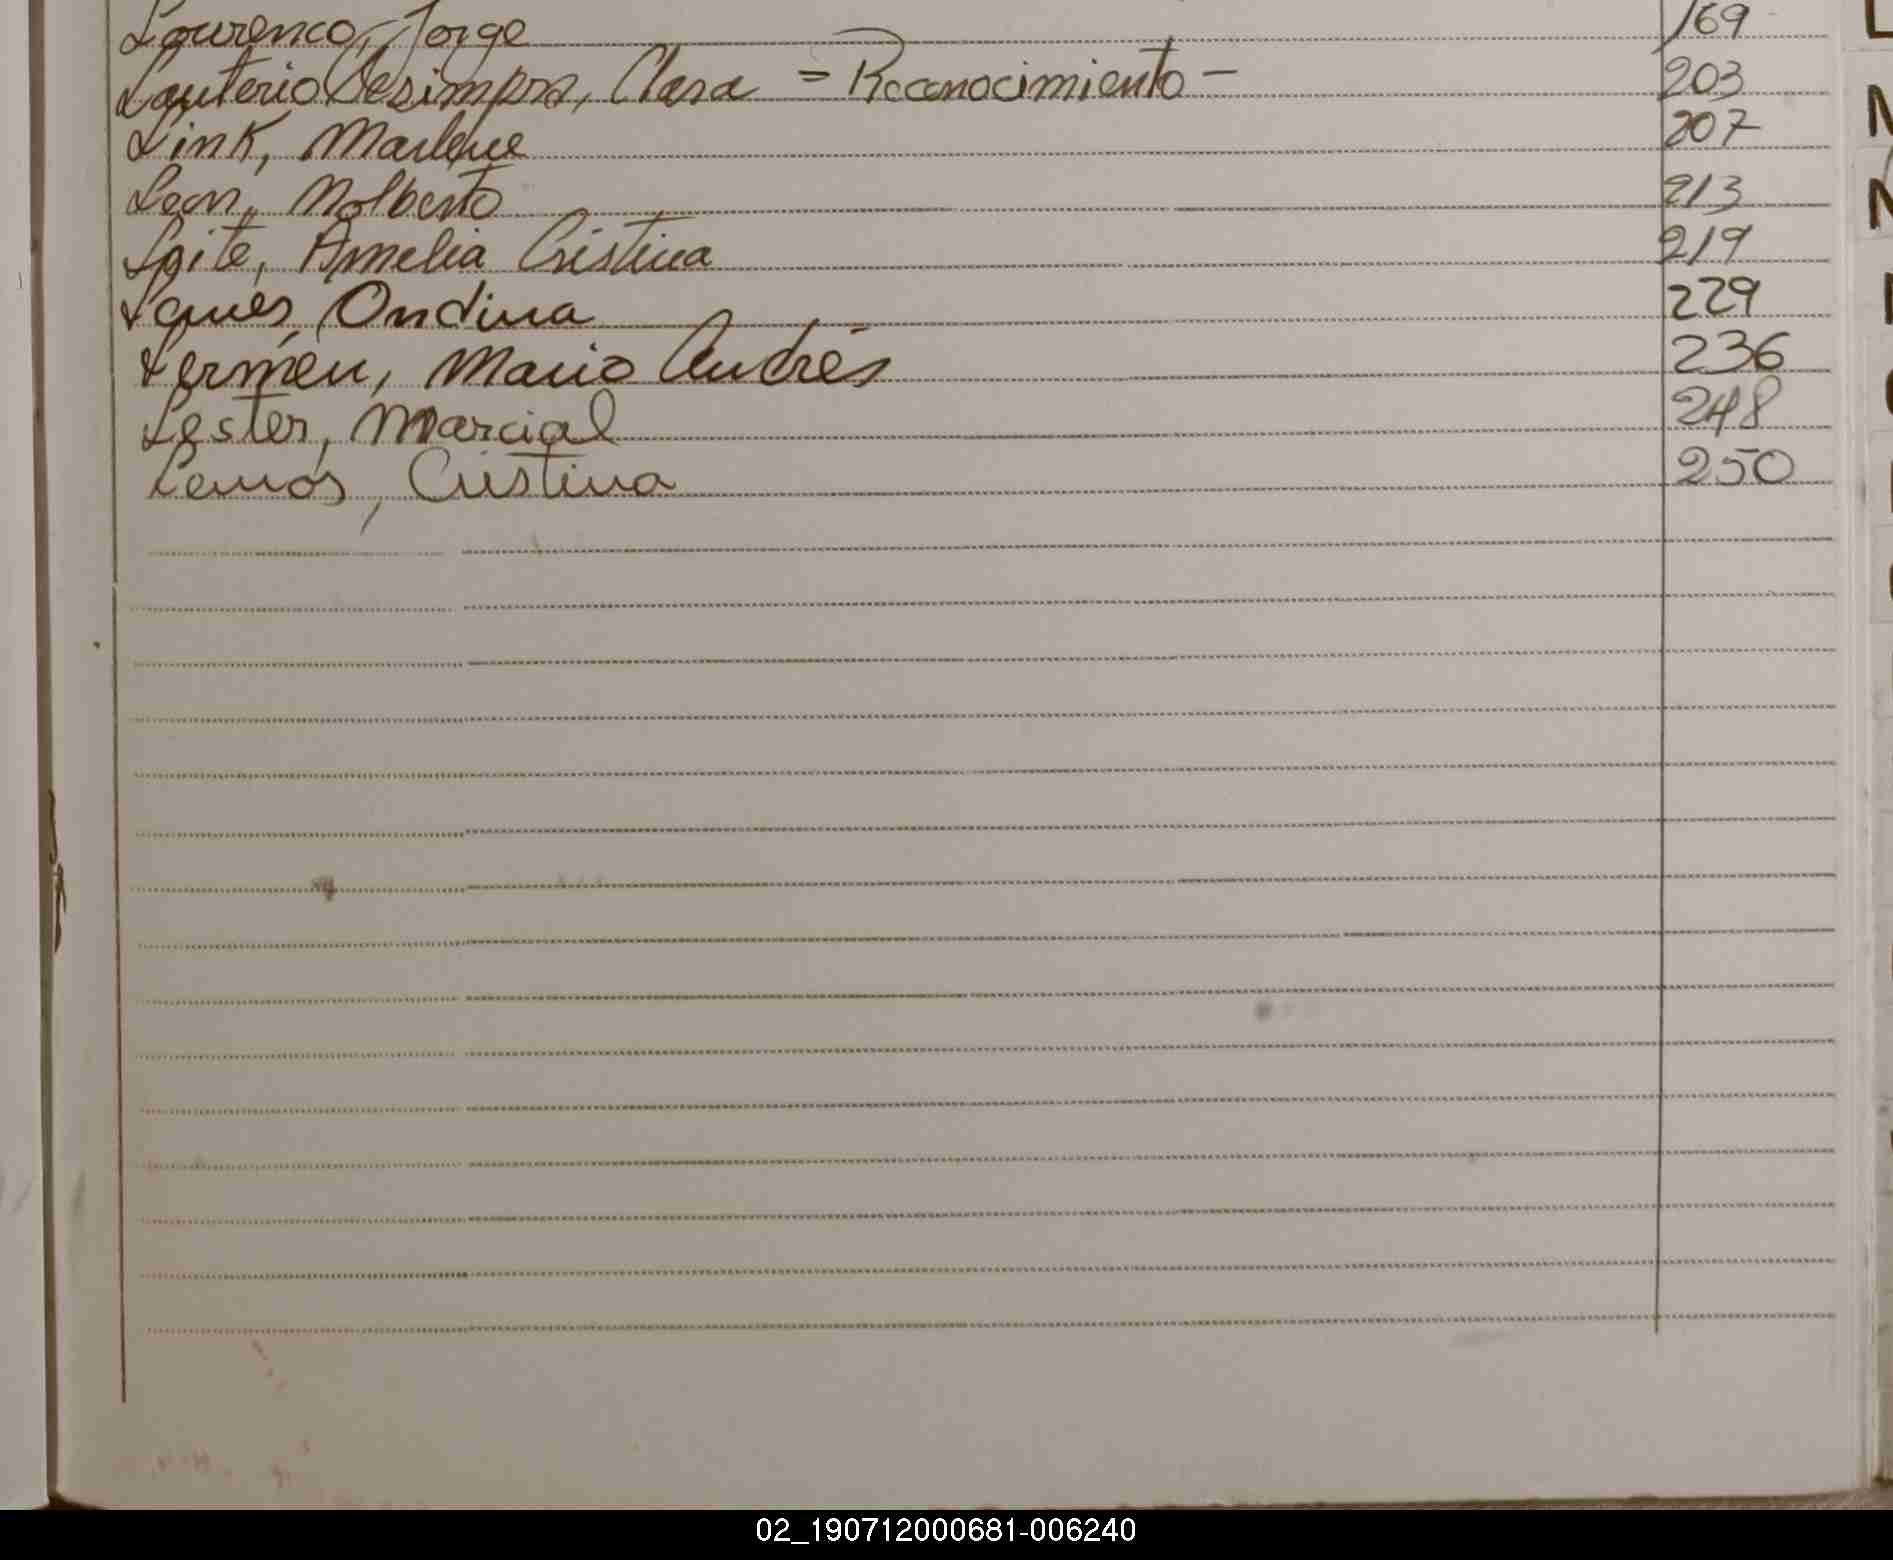 Lourenco, Jorge 169
Lauterio Clara = Reconocimiento - 203
Link, Marlene 207
Leon, Nolberto 213
Leite, Amelia Cristina 219
Ondina 229
Lermen, Mario Andrés 236
Lester, Marcial 248
Lemos, Cristina 250
02_190712000681-006240